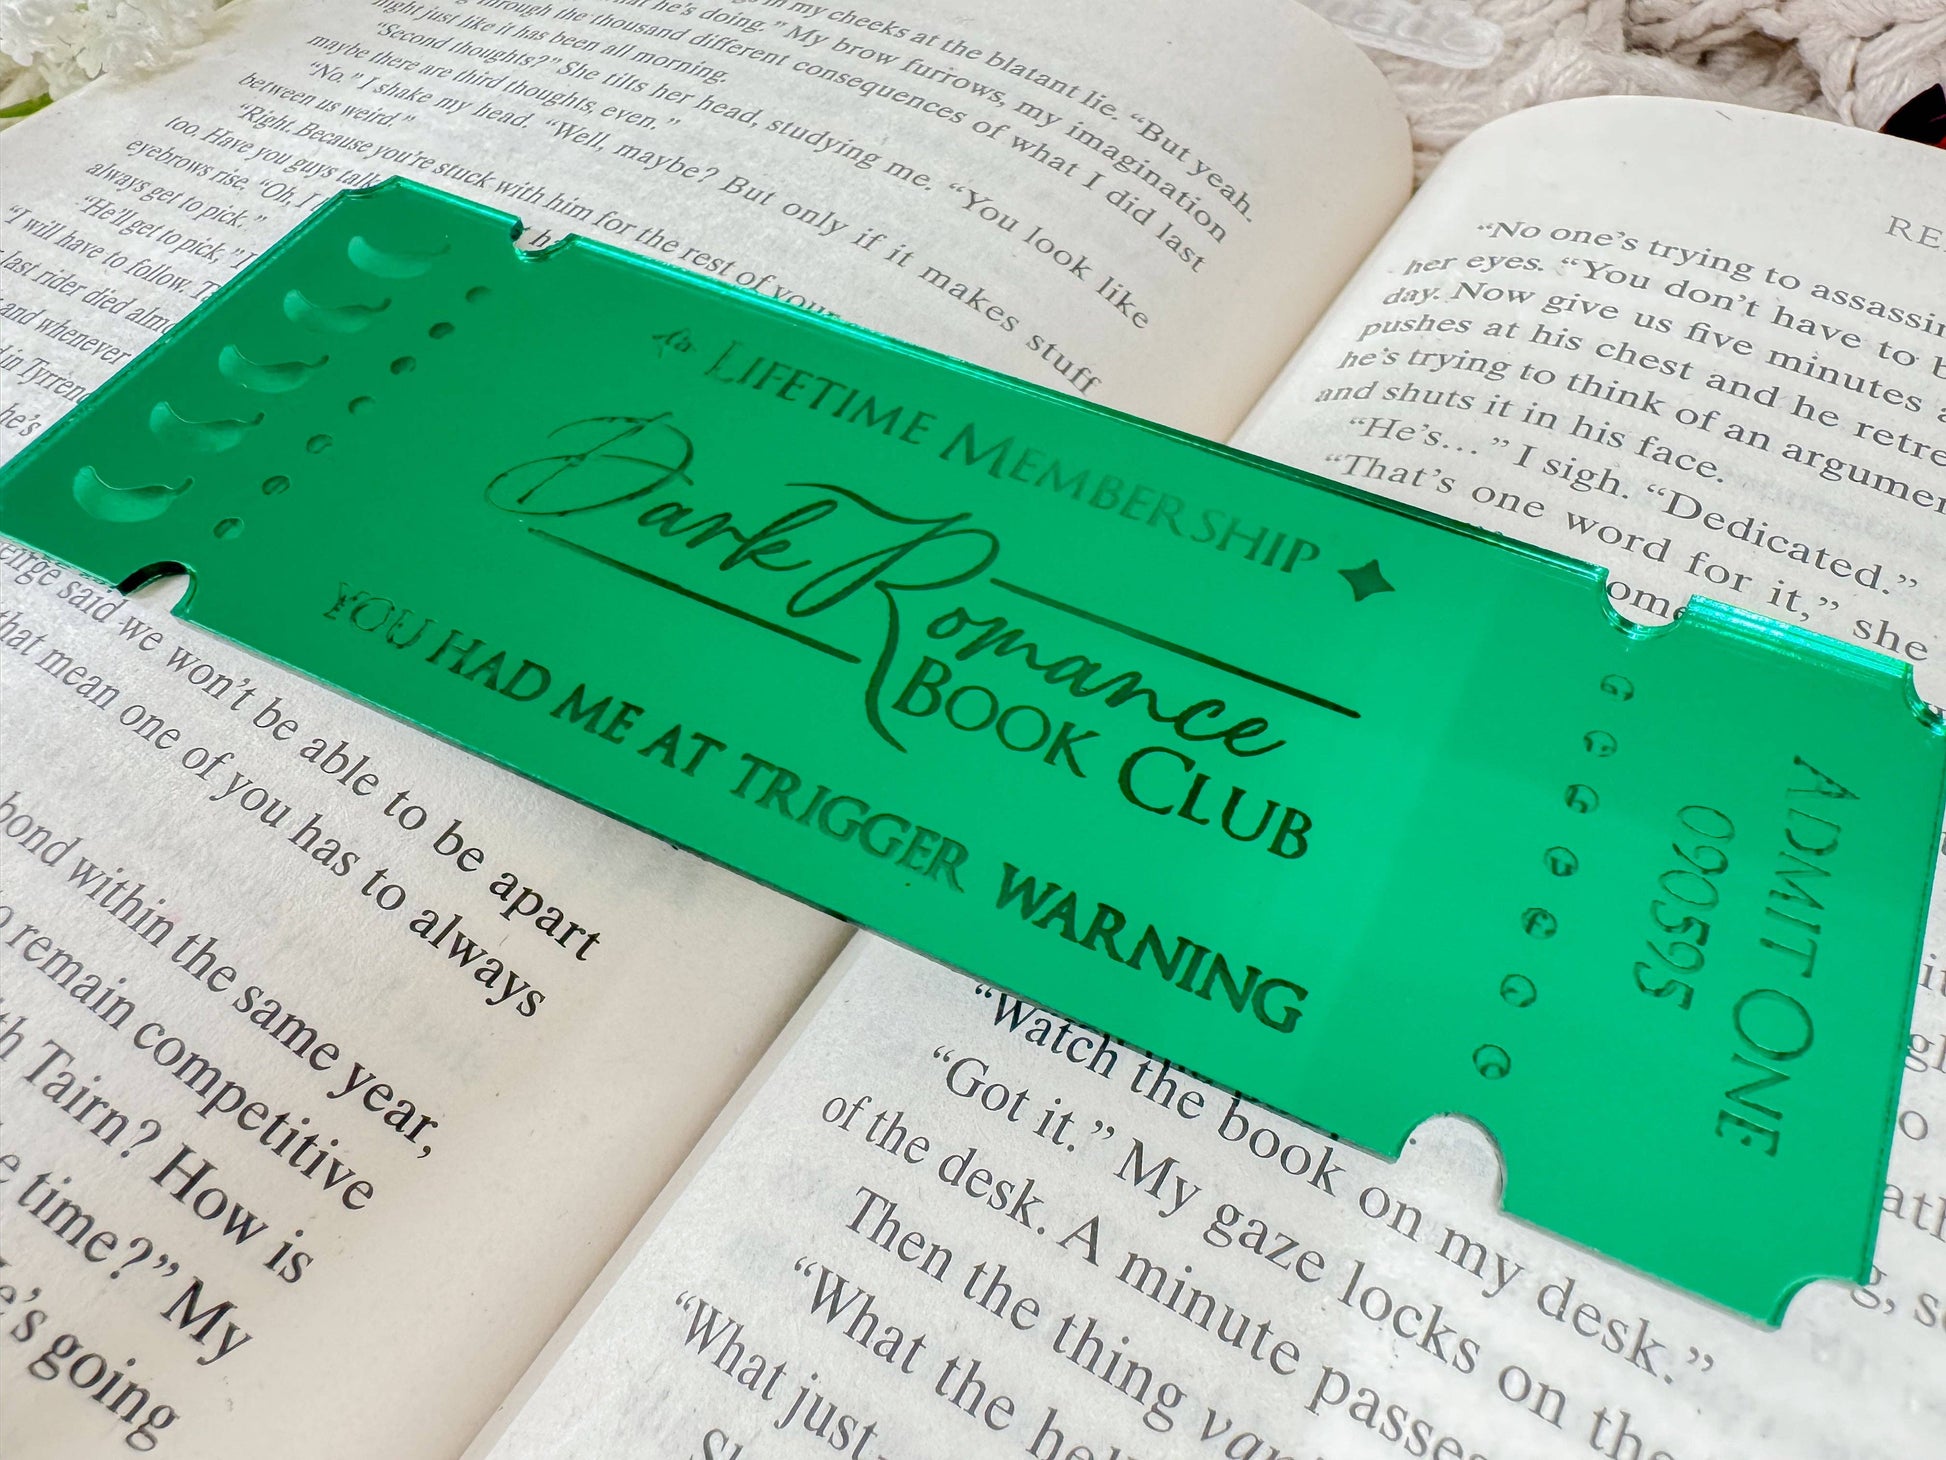 in my cheeks at the blatant lie. “But yeah.
what he’s doing.” My brow furrows, my imagination
through the thousand different consequences of what I did last
night just like it has been all morning.
“Second thoughts?” She tilts her head, studying me. “You look like
maybe there are third thoughts, even.”
“No.” I shake my head. “Well, maybe? But only if it makes stuff
between us weird.”
“Right. Because you’re stuck with him for the rest of your
too. Have you guys talk
eyebrows rise. “Oh, I
always get to pick.”
“He’ll get to pick,” I
“I will have to follow.
last rider died almo
and whenever
in Tyrren
he’s
LIFETIME MEMBERSHIP
Dark Romance
BOOK CLUB
YOU HAD ME AT TRIGGER WARNING
ADMIT ONE
090595
said we won’t be able to be apart
that mean one of you has to always
bond within the same year,
remain competitive
Tairn? How is
time?” My
He’s going
RE
“No one’s trying to assassin
her eyes. “You don’t have to b
day. Now give us five minutes a
pushes at his chest and he retre
he’s trying to think of an argumen
and shuts it in his face.
“He’s…” I sigh. “Dedicated.”
“That’s one word for it,” she
ome
“Watch the book on my desk.”
“Got it.” My gaze locks on the
of the desk. A minute passes
Then the thing van
“What the hell
“What just—
Sh